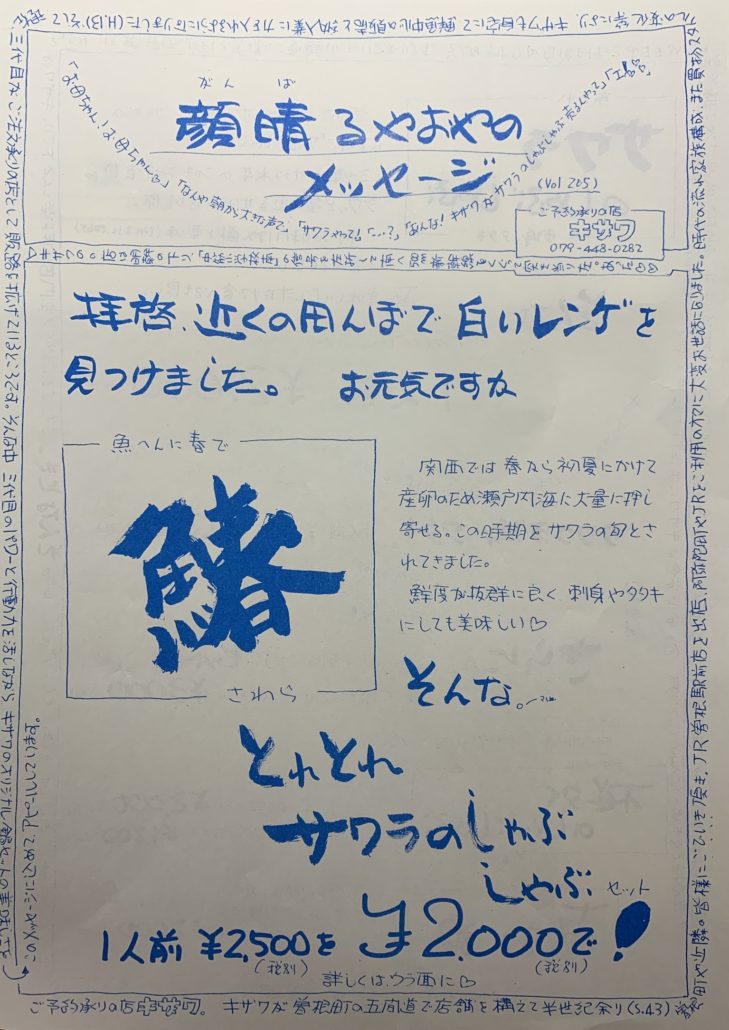 がんば
顔晴るやおやの
メッセージ
(Vol 205)
「お母ちゃん！お母ちゃん！」「なんや朝から大きな声で」「サワラやって？」「…？」「あんな！キザワがサワラのしゃぶしゃぶ売るんやって」
ご予約承りの店
キザワ
079-448-0282
拝啓、近くの田んぼで白いレンゲを
見つけました。 お元気ですか
魚へんに春で
鰆
さわら
関西では春から初夏にかけて
産卵のため瀬戸内海に大量に押し
寄せる。この時期をサワラの旬とさ
れてきました。
鮮度が抜群に良く、刺身やタタキ
にしても美味しい♡
そんな。
とれとれ
サワラのしゃぶ
しゃぶ セット
1人前 ¥2,500を ¥2,000で!
(税別) (税別)
詳しくは、ウラ面に♡
ご予約承りの店キザワ。 キザワが曽根町の五間道で店舗を構えて半世紀余り(S.43)
町や近隣の皆様にごひいき頂き、JR曽根駅前店を出店、阿弥陀町やJRをご利用の方々に大変お世話になりました。時代の流れや家族構成、また買物スタ
イルの変化等により、キザワも自店にて鮮魚中心の販売と納入業に力を入れるようになりました(H.13)そして
三代目が、ご注文承りの店として販路を拡げているところです。そんな中 三代目のパワーと行動力を活しながら キザワのオリジナル
このメッセージに込めて、アピールしていきます。